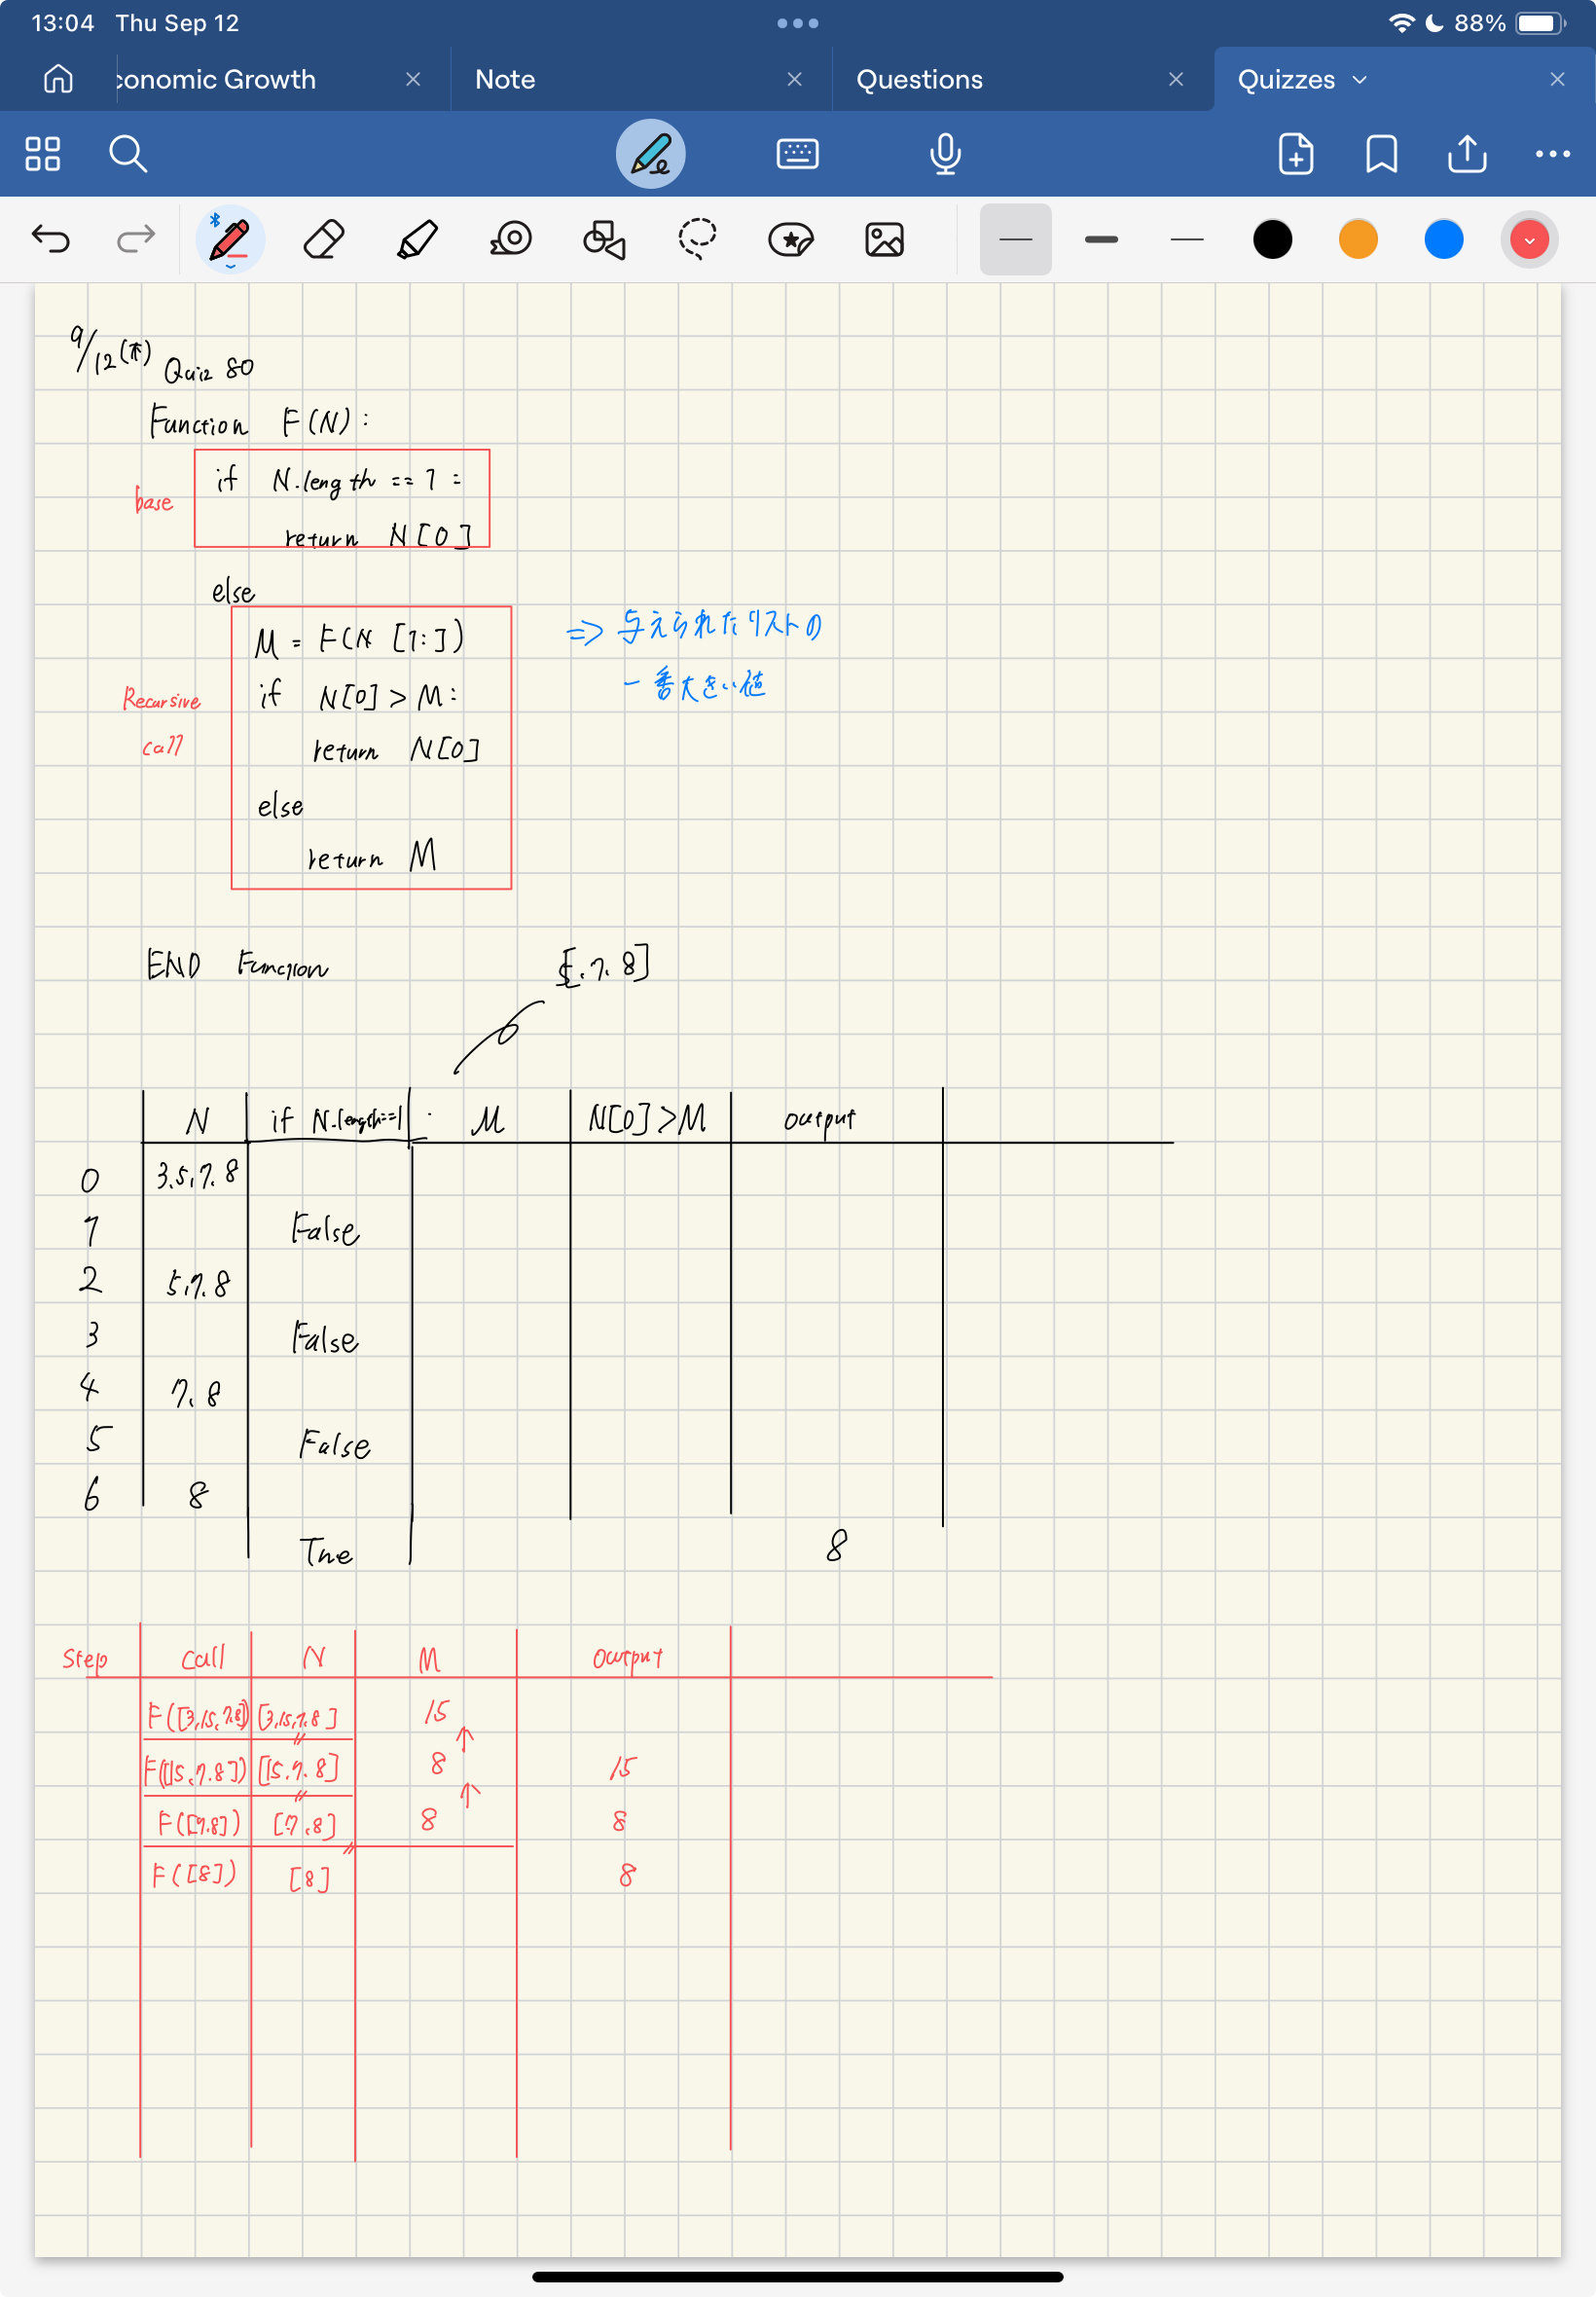 13:04 Thu Sep 12
88%
conomic Growth
Note
Questions
Quizzes
9/12(木) Quiz 80
Function F(N):
base
if N.length == 1 :
return N[0]
else
Recursive call
M = F(N [1:])
if N[0] > M:
return N[0]
else
return M
=> 与えられたリストの
一番大きい値
END Function
[.7.8]
N if N.length==1 M N[0]>M output
0 3.5.7.8
1 False
2 5.7.8
3 False
4 7.8
5 False
6 8
True 8
Step call N M output
F([3,15,7.8]) [3,15,7.8] 15
F([15.7.8]) [15.7.8] 8 15
F([7.8]) [7.8] 8 8
F([8]) [8] 8